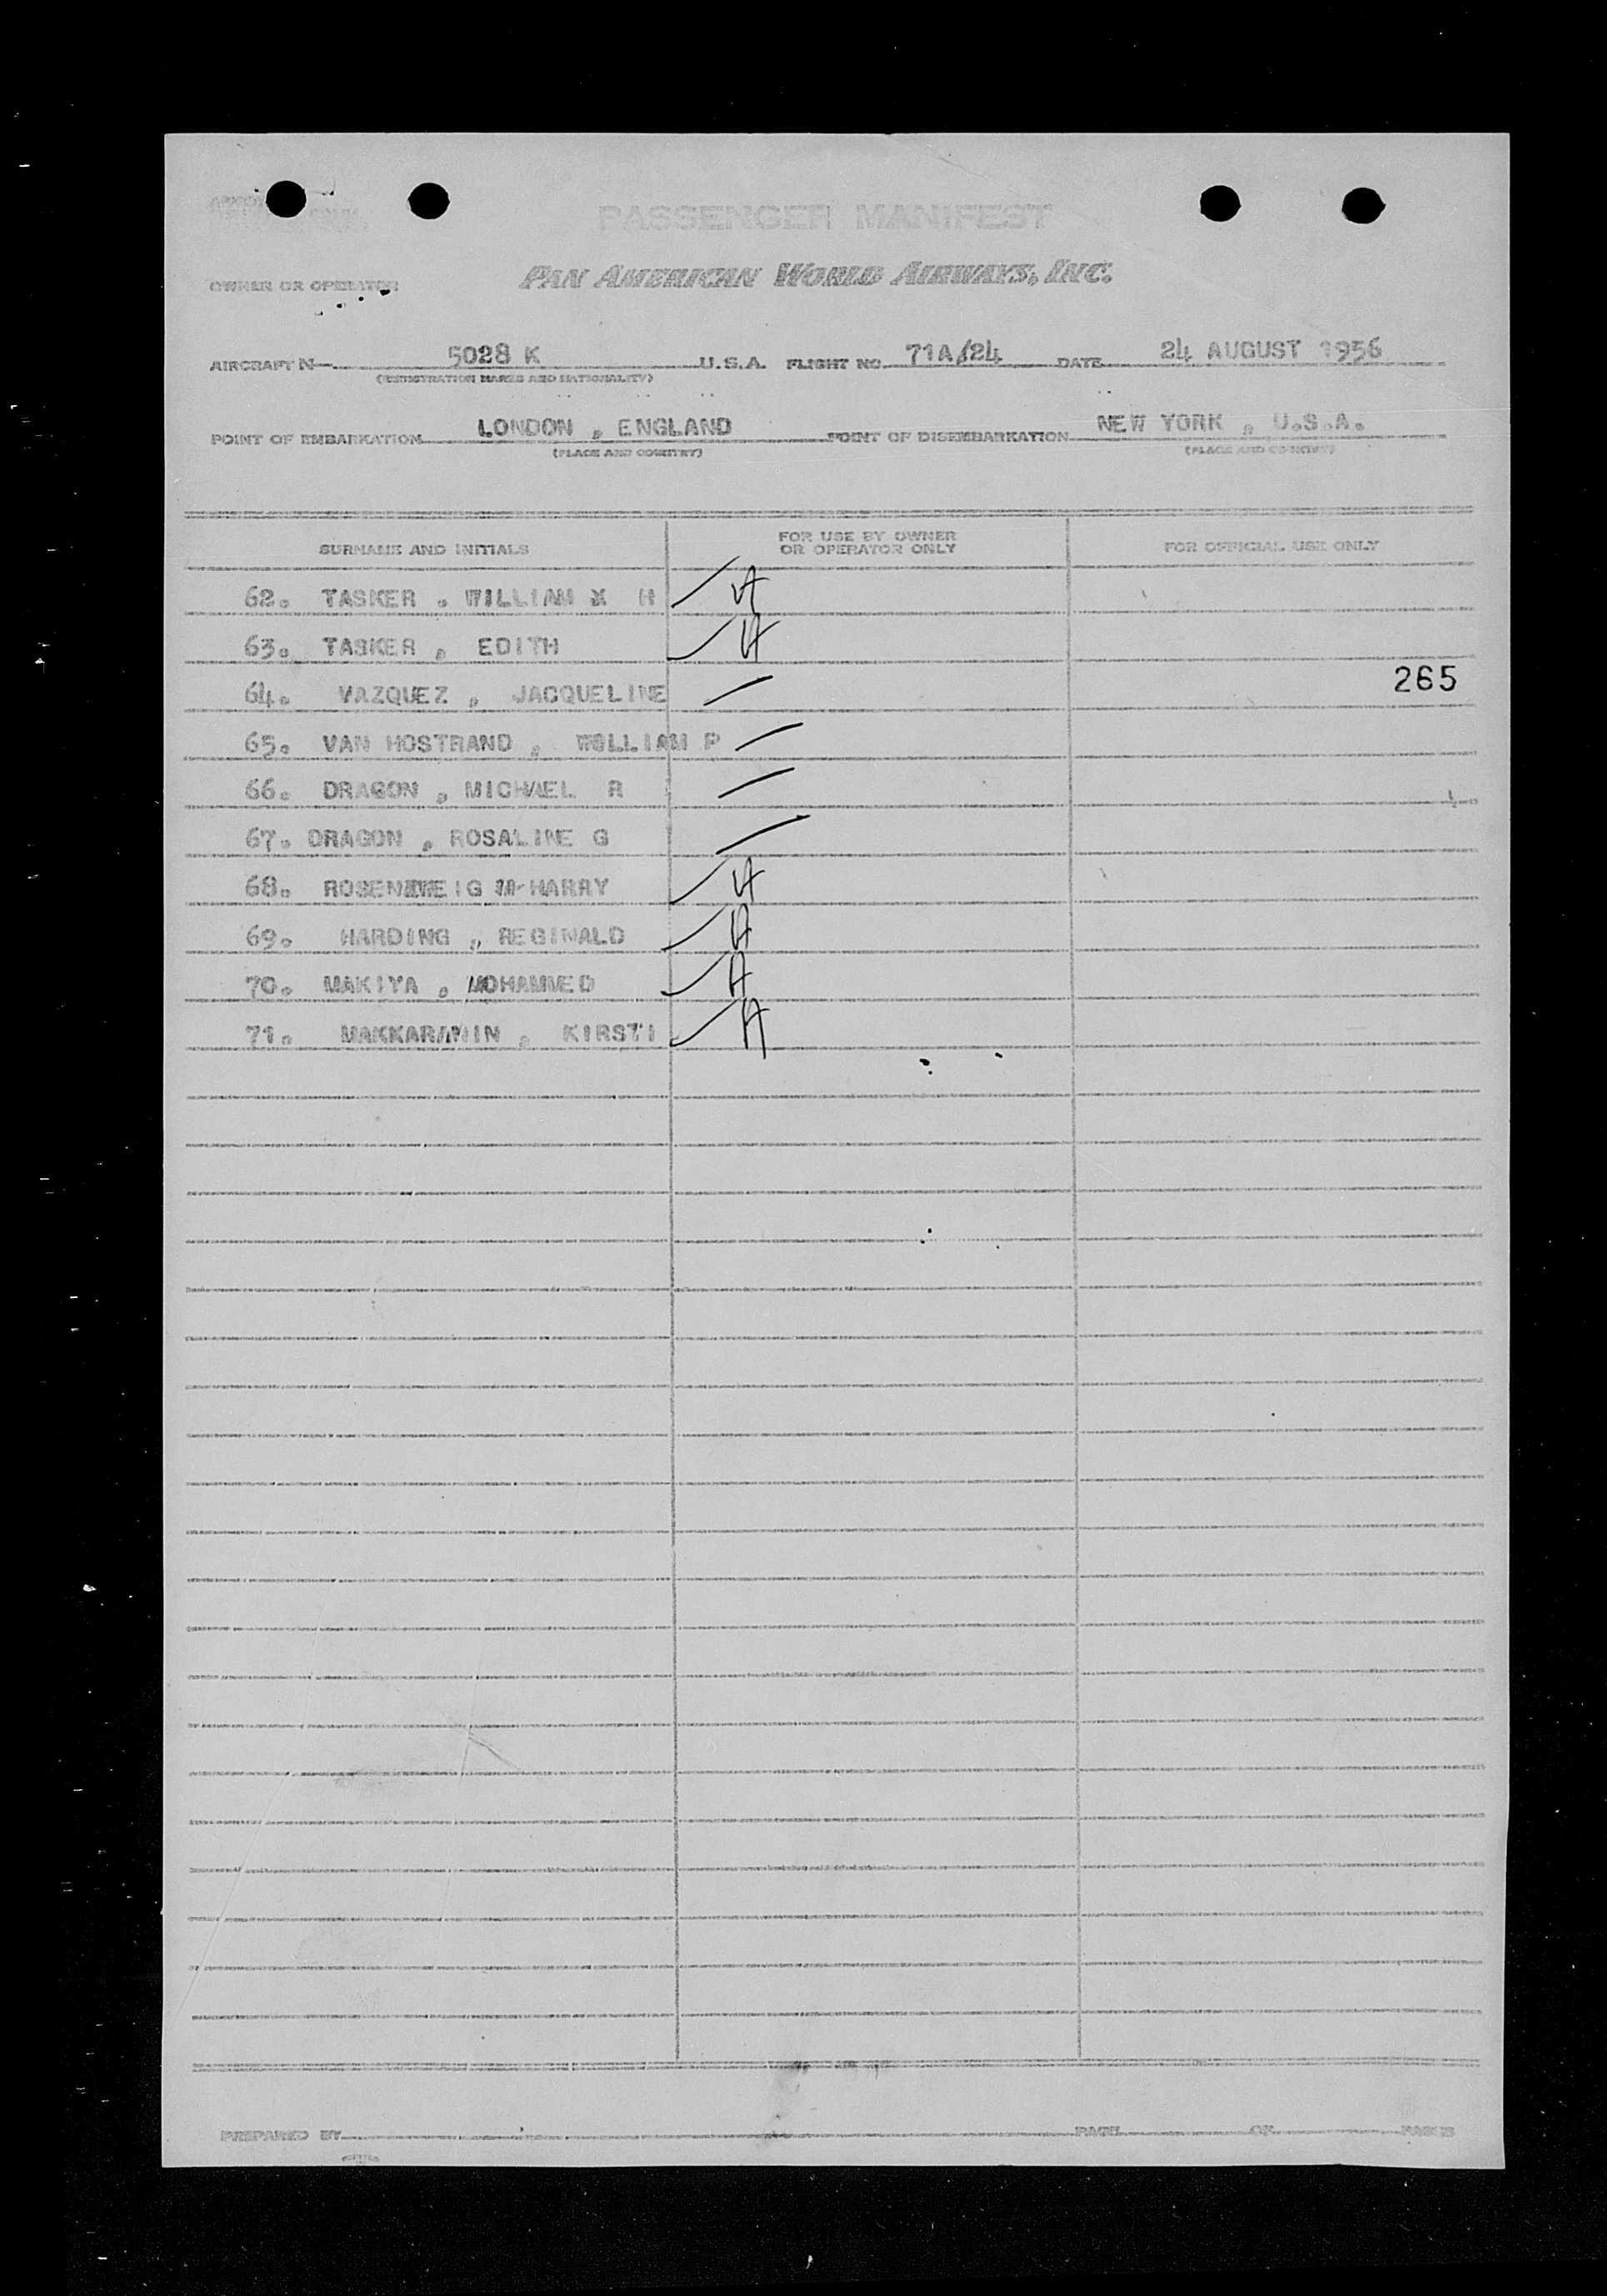 PASSENGER MANIFEST
OWNER OR OPERATOR PAN AMERICAN WORLD AIRWAYS, INC.
AIRCRAFT N 5028 K U.S.A. FLIGHT NO. 71A/24 DATE 24 AUGUST 1956
(REGISTRATION MARKS AND NATIONALITY)
POINT OF EMBARKATION LONDON , ENGLAND POINT OF DISEMBARKATION NEW YORK , U.S.A.
(PLACE AND COUNTRY) (PLACE AND COUNTRY)
SURNAME AND INITIALS FOR USE BY OWNER OR OPERATOR ONLY FOR OFFICIAL USE ONLY
62. TASKER , WILLIAM X H A
63. TASKER , EDITH A
265
64. VAZQUEZ , JACQUELINE
65. VAN HOSTRAND , WILLIAM P
66. DRAGON , MICHAEL R
67. DRAGON , ROSALINE G
68. ROSENZWEIG HARRY A
69. HARDING , REGINALD A
70. MAKIYA , MOHAMMED A
71. , KIRSTI A
PREPARED BY PAGE OF PAGES